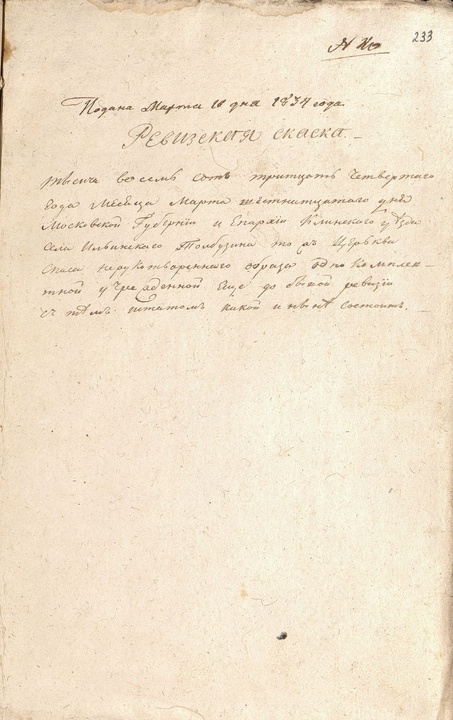 233
Подана Марта 16 дня 1834 года.
Ревизская скаска
тысяча восемь сотъ тритцать четвертаго
года Месяца Марта шестнатцатого дня
Московской Губернiи и Епархiи Клинского уезда
Села Ильинского Толбузина то жъ Церькви
Спаса нерукотвореннаго образа однокомплек-
тной учрежденной еще до бывшей ревизiи
съ темъ штатомъ какой и ныне состоитъ.